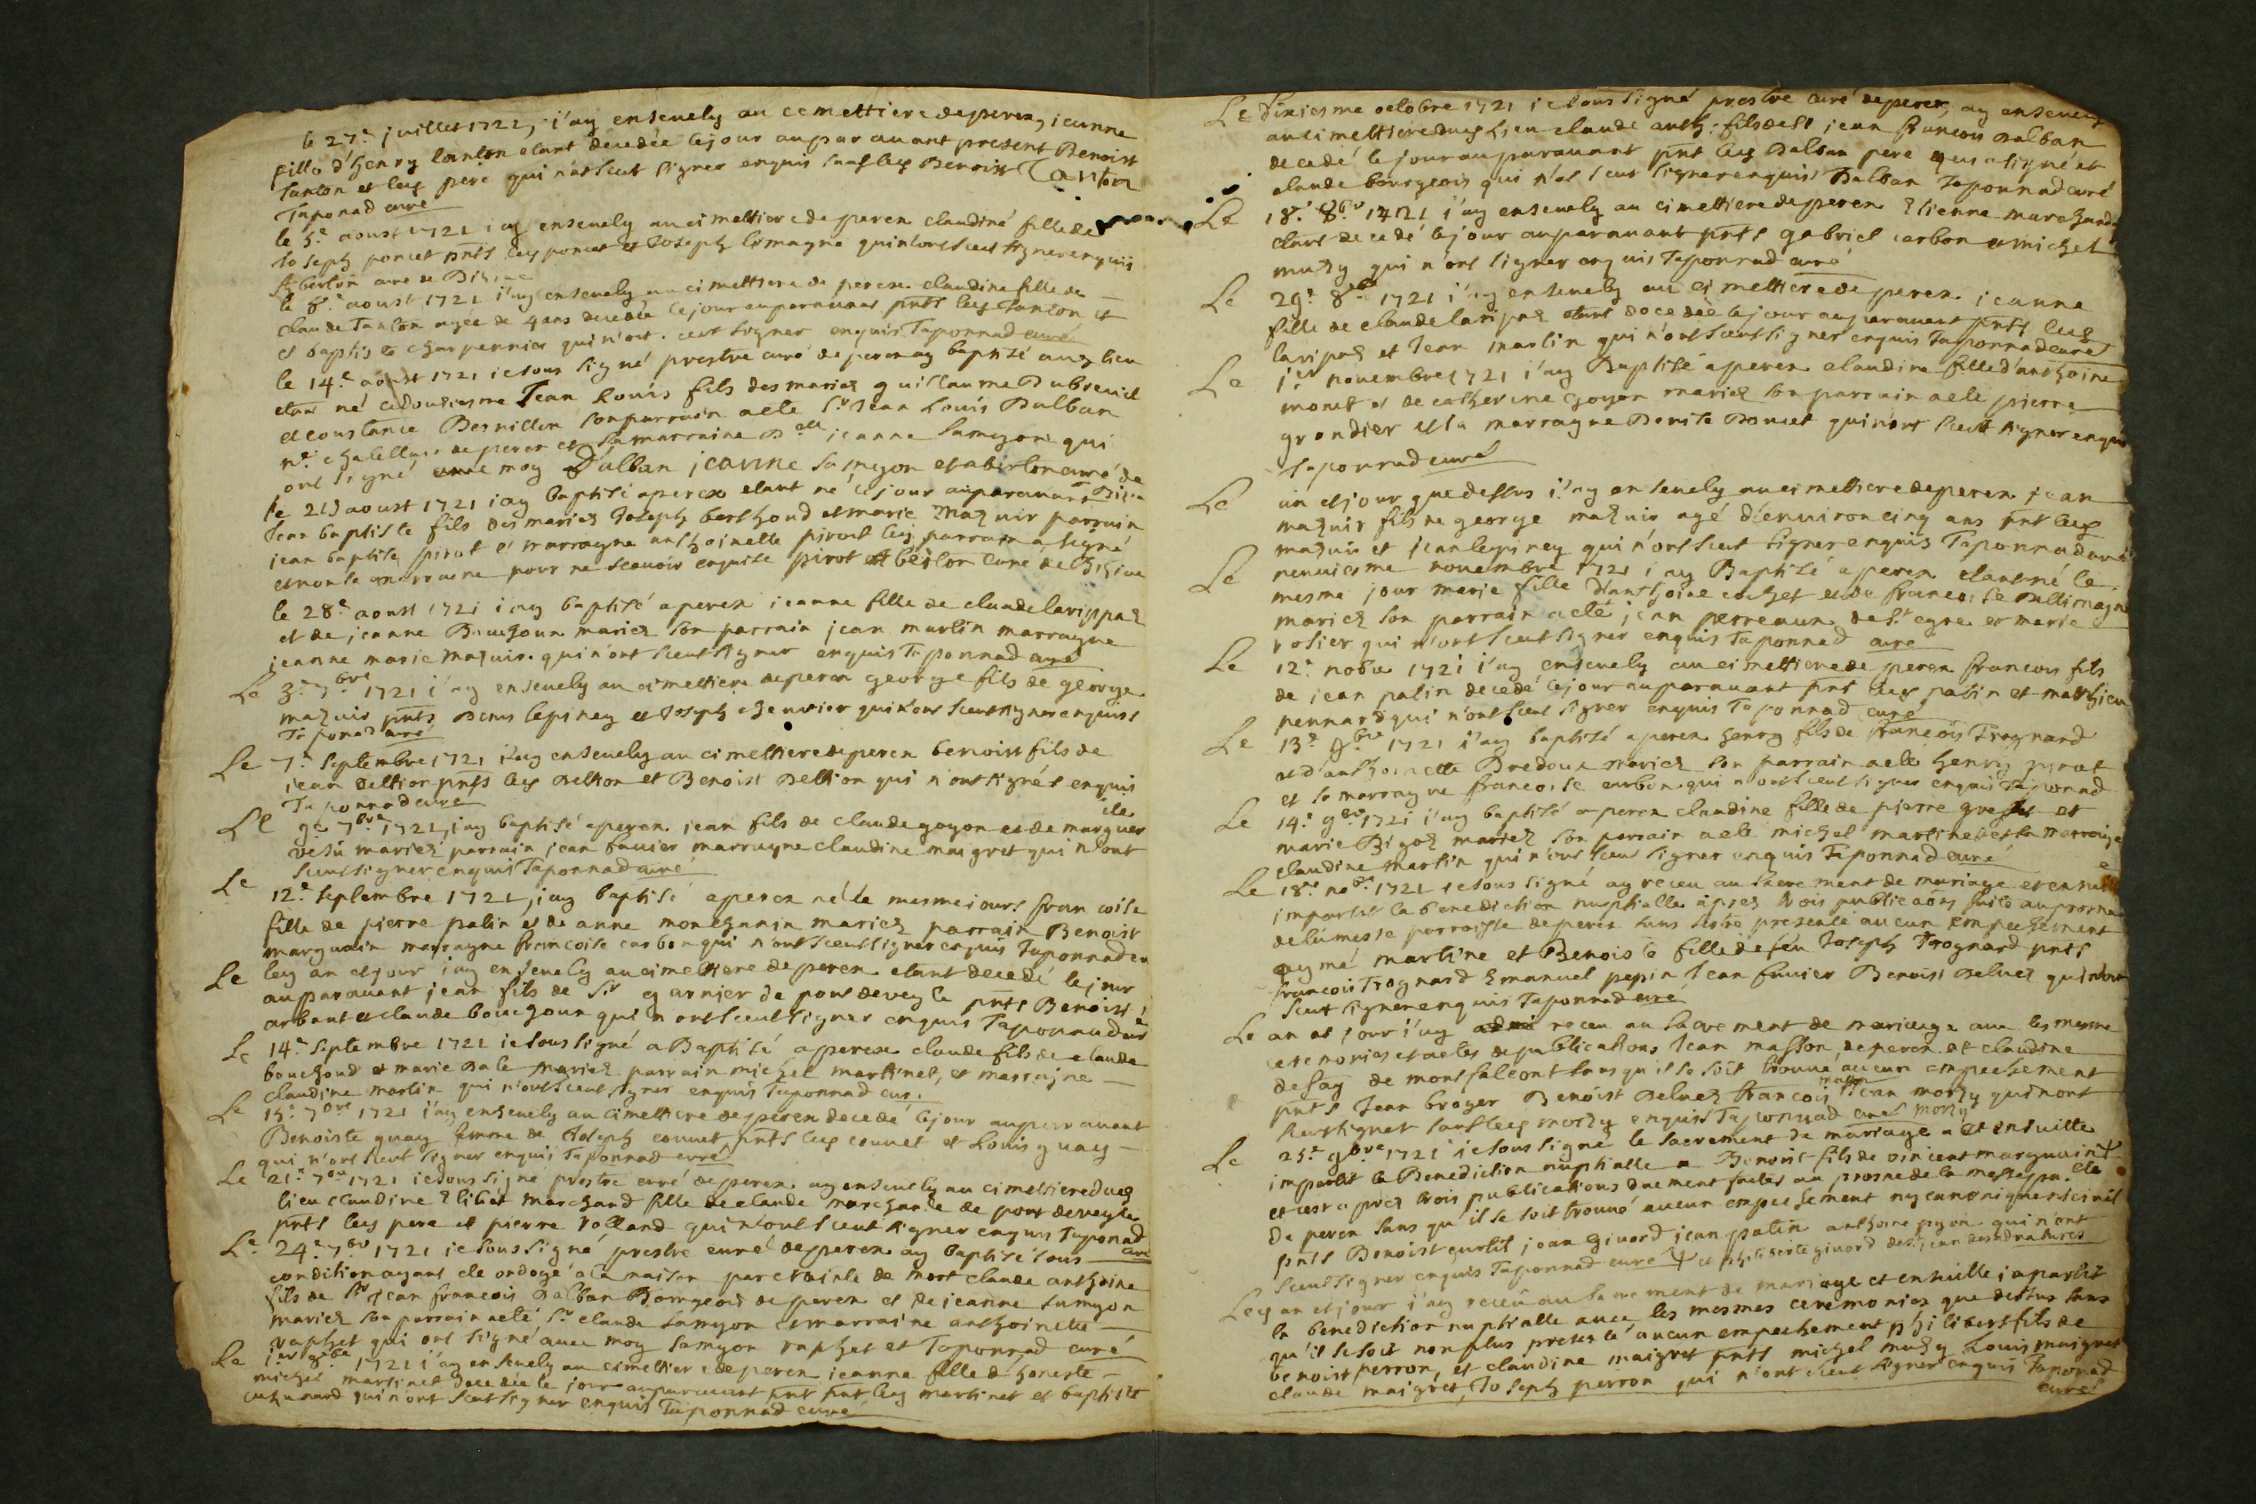 le 27.e juillet 1721, i'ay ensevely au cemettiere de perex, jeanne
fille d'henry tanton etant décedée le jour auparavant present Benoist
tanton et ledy pere qui n'at sceut signer enquis sauf ledy Benoist Tanton
Taponad curé
le 5.e aoust 1721 i ay ensevely au cimettiere de perex claudine fille de
Joseph poncet pnts ledy poncet et Joseph qui n'ont sceut signer enquis
berton curé de
le 8.e aoust 1721 i'ay ensevely au cimettiere de perex claudine fille de
claude Tanton agée de 4 ans decedée le jour auparavant pnts ledy Tanton et
et baptiste charpennier qui n'ont sceut signer enquis Taponnad curé
le 14.e aoust 1721 ie sous signé prestre curé de perex ay baptisé audy lieu
etan né ce douziesme Jean Louis fils des mariez guillaume Dubreuil
et constance son parrain a eté Sr Jean Louis Dalban
de perex et sa marraine Delle jeanne Samyon qui
ont signé avec moy Dalban jeanne samyon et aberton curé de
le 21 aoust 1721 i ay baptisé a perex etant né le jour auparavant
Jean baptiste fils des mariez Joseph berthoud et marie mazuir parrain
jean baptiste pirot et marrayne anthoinette pirot ledy parrain a signé
et non la marraine pour ne scavoir enquise pirot Aberton curé de
le 28.e aoust 1721 i ay baptisé a perex jeanne fille de claude larippaz
et de jeanne Bouchoux mariez son parrain jean martin marrayne
jeanne marie mazuir qui n'ont sceut signer enquis Taponnad curé
Le 3.e 7bre 1721 i'ay ensevely au cimettiere de perex george fils de george
mazuir pnts Denis lepiney et Joseph chenvier qui n'ont sceut signer enquis
Taponad curé
Le 7.e septembre 1721 i'ay ensevely au cimettiere de perex benoist fils de
jean dettion pnts ledy dettion et Benoist dettion qui n'ont signés enquis
Taponnad curé
Le 9.e 7bre 1721, i ay baptisé a perex jean fils de claude goyon et de marguerite
mariez parrain jean fuvier marrayne claudine maigret qui n'ont
sceut signer enquis Taponnad curé
Le 12.e septembre 1721, i ay baptisé a perex né le mesme jour francoise
fille de pierre palin et de anne monchanin mariez parrain Benoist
marguain marrayne francoise carbon qui n'ont sceut signer enquis Taponnad cu
Le ledy an et jour i ay ensevely au cimettiere de perex etant decedé le jour
auparavant jean fils de Sr garnier de pont de veyle pnts Benoist
arbant et claude bouchoux qui n'ont sceut signer enquis Taponnad curé
Le 14.e septembre 1721 ie sous signé a Baptisé a perex claude fils de claude
bouchoux et marie mariez parrain michel martinet, et marrayne
claudine martin qui n'ont sceut signer enquis Taponnad cur.
Le 15.e 7bre 1721 i'ay ensevely au cimettiere de perex decedé le jour auparavant
Benoiste guay femme de Joseph connet pnts ledy connet et Louis guay
qui n'ont sceut signer enquis Taponnad curé
Le 21.e 7bre 1721 ie sous signé prestre curé de perex ay ensevely au cimettiere dudy
lieu claudine marchand fille de claude marchande de pont de veyle
pnts ledy pere et pierre rolland qui n'ont sceut signer enquis Taponad
curé
Le 24.e 7bre 1721 ie sous signé prestre curé de perex ay baptisé sous
condition ayant eté ondoyé a la maison par crainte de mort claude anthoine
fils de Sr jean francois Dalban Bourgeois de perex et de jeanne samyon
mariez son parrain a eté Sr claude samyon et marraine anthoinette
raphet qui ont signé avec moy samyon raphet et Taponnad curé
Le 1.er 8bre 1721 i'ay ensevely au cimettiere de perex jeanne fille d'honeste
michel martinet decedée le jour auparavant pnt pnt ledy martinet et baptiste
qui n'ont sceut signer enquis Taponnad curé
Le Dixiesme octobre 1721 ie sous signé prestre curé de perex, ay ensevely
au cimettiere dudy lieu claude anth: fils de Sr jean francois Dalban
decedé le jour auparavant pnt ledy Dalban pere qui a signé et
claude bourgeois qui n'at sceut signer enquis Dalban Taponnad curé
Le 18.e 8bre 1721 i'ay ensevely au cimettiere de perex Etienne marchand
etant decedé le jour auparavant pnts gabriel carbon et michel
muzy qui n'ont signer enquis Taponnad curé
Le 29.e 8bre 1721 i'ay ensevely au cimettiere de perex jeanne
fille de claude laripaz etant decedée le jour auparavant pnts ledy
laripaz et Jean martin qui n'ont sceut signer enquis Taponnad curé
Le 1.er novembre 1721 i'ay Baptisé a perex claudine fille d'anthoine
monet et de catherine goyon mariez son parrain a eté pierre
grandier et la marrayne Benoite Poncet qui n'ont sceut signer enquis
Taponnad curé
Le an et jour que dessus i'ay ensevely au cimettiere de perex jean
mazuir fils de george mazuir agé d'environ cinq ans pnt ledy
mazuir et jean lepiney qui n'ont sceut signer enquis Taponnad curé
Le neuviesme novembre 1721 i ay Baptisé a perex etant né le
mesme jour marie fille d'anthoine cochet et de francoise
mariez son parrain a eté jean perreaux de St cyre et marie
rosier qui n'ont sceut signer enquis Taponnad curé
Le 12.e nobre 1721 i'ay ensevely au cimettiere de perex francois fils
de jean palin decedé le jour auparavant pnt ledy palin et matthieu
pennard qui n'ont sceut signer enquis Taponnad curé
Le 13.e 9bre 1721 i'ay baptisé a perex henry fils de francois Trognard
et d'anthoinette Bredoux mariez son parrain a eté henry pirot
et sa marrayne francoise carbon qui n'ont sceut signer enquis Taponad
Le 14.e 9bre 1721 i'ay baptisé a perex claudine fille de pierre et
marie Bigot mariez son parrain a eté michel martinet et la marraine
claudine martin qui n'ont sceut signer enquis Taponnad curé
Le 18.e nobre 1721 ie sous signé ay receu au sacrement de mariage et ensuitte
impartit la benediction nuptialle apres trois publicaons faite au prosne
de la messe parroisse de perex sans estre presenté aucun empechement
aymé martine et Benoiste fille de feu Joseph Trognard pnts
francois Trognard Emanuel pepin Jean fuvier Benoist Delvez qui n'ont
sceut signer enquis Taponnad curé
Le an et jour i'ay receu au sacrement de mariage avec les mesme
ceremonies et actes de publications Jean masson, de perex et claudine
defay de montfalcont sans qu'il se soit trouvé aucun empechement
pnts Jean broyer Benoist Delvez francois masson Jean morzy qui n'ont
sceut signer sauf ledy morzy enquis Taponnad curé morzy
Le 25.e 9bre 1721 ie sous signé le sacrement de mariage a et ensuitte
impartit la Benediction nuptialle a Benoist fils de vincent marguain
et ce apres trois publications duement faites au prosne de la messe
de perex sans qu'il se soit trouvé aucun empechement ny canonique ny civil
pnts Benoist curtil jean givord jean palin anthoine pyon qui n'ont
sceut signer enquis Taponnad curé et philiberte givord de St jean
Ledy an et jour i'ay receu au sacrement de mariage et ensuitte impartit
la benediction nuptialle avec les mesmes ceremonies que dessus sans
qu'il se soit non plus presenté aucun empechement philibert fils de
benoist perron, et claudine maigret pnts michel muzy Louis maigret
claude maigret, Joseph perron qui n'ont sceut signer enquis Taponad
curé